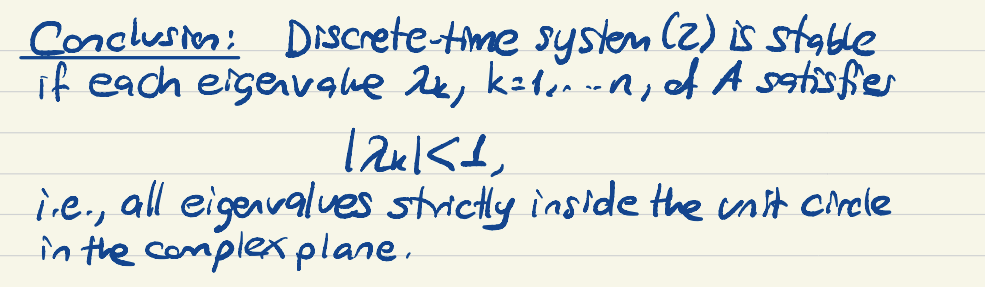 Conclusion: Discrete-time system (2) is stable
if each eigenvalue λk, k=1,...n, of A satisfies
|λk|<1,
i.e., all eigenvalues strictly inside the unit circle
in the complex plane.